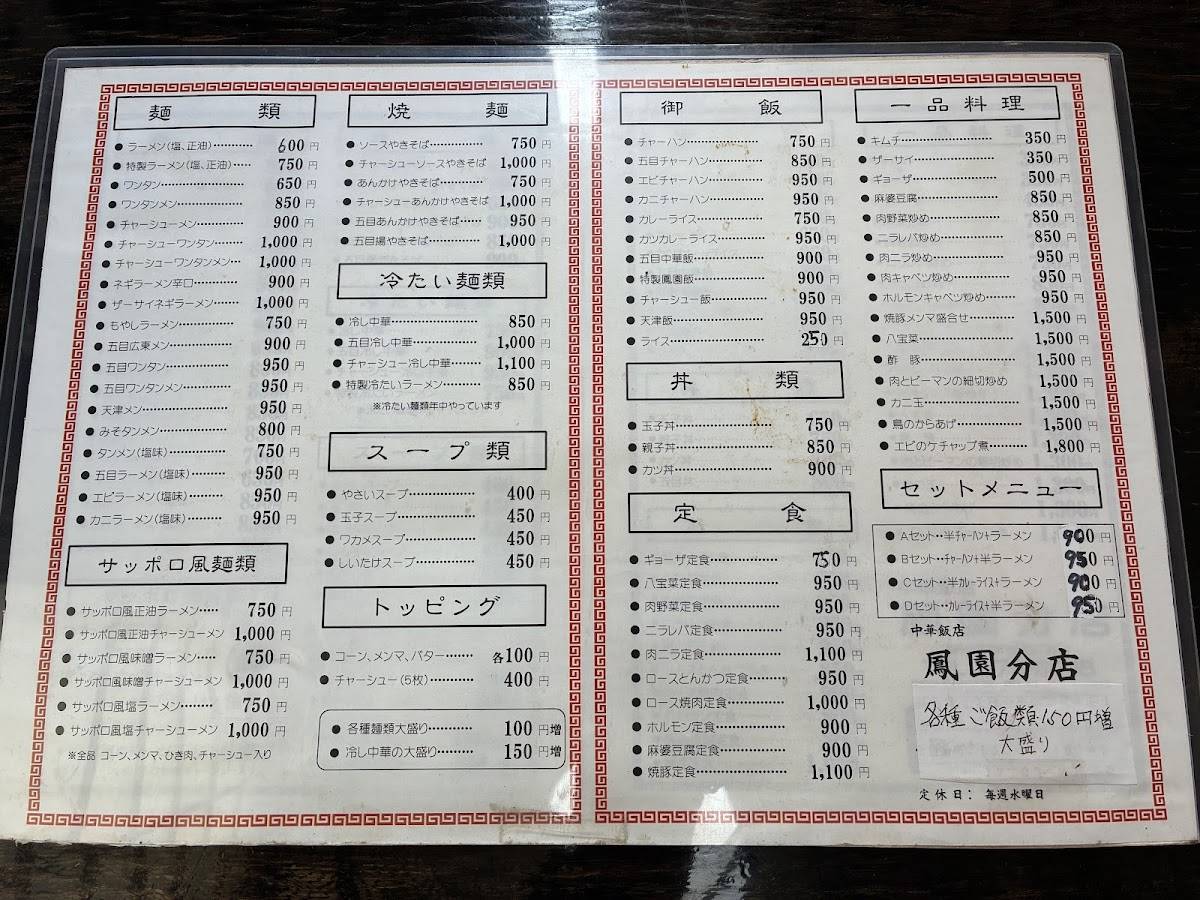 麺類
●ラーメン(塩、正油)…………600円
●特製ラーメン(塩、正油)……750円
●ワンタン…………………650円
●ワンタンメン……………850円
●チャーシューメン…………900円
●チャーシューワンタン………1,000円
●チャーシューワンタンメン…1,000円
●ネギラーメン辛口…………900円
●ザーサイネギラーメン………1,000円
●もやしラーメン……………750円
●五目広東メン……………900円
●五目ワンタン……………950円
●五目ワンタンメン…………950円
●天津メン…………………950円
●みそタンメン……………800円
●タンメン(塩味)……………750円
●五目ラーメン(塩味)………950円
●エビラーメン(塩味)………950円
●カニラーメン(塩味)………950円
サッポロ風麺類
●サッポロ風正油ラーメン……750円
●サッポロ風正油チャーシューメン 1,000円
●サッポロ風味噌ラーメン……750円
●サッポロ風味噌チャーシューメン 1,000円
●サッポロ風塩ラーメン………750円
●サッポロ風塩チャーシューメン 1,000円
※全品 コーン、メンマ、ひき肉、チャーシュー入り
焼麺
●ソースやきそば……………750円
●チャーシューソースやきそば 1,000円
●あんかけやきそば…………750円
●チャーシューあんかけやきそば 1,000円
●五目あんかけやきそば……950円
●五目揚やきそば…………1,000円
冷たい麺類
●冷し中華…………………850円
●五目冷し中華……………1,000円
●チャーシュー冷し中華………1,100円
●特製冷たいラーメン………850円
※冷たい麺類年中やっています
スープ類
●やさいスープ……………400円
●玉子スープ………………450円
●ワカメスープ……………450円
●しいたけスープ…………450円
トッピング
●コーン、メンマ、バター………各100円
●チャーシュー(5枚)…………400円
●各種麺類大盛り…………100円増
●冷し中華の大盛り………150円増
御飯
●チャーハン………………750円
●五目チャーハン…………850円
●エビチャーハン…………950円
●カニチャーハン…………950円
●カレーライス……………750円
●カツカレーライス…………950円
●五目中華飯………………900円
●特製鳳園飯………………900円
●チャーシュー飯…………950円
●天津飯……………………950円
●ライス……………………250円
丼類
●玉子丼……………………750円
●親子丼……………………850円
●カツ丼……………………900円
定食
●ギョーザ定食……………750円
●八宝菜定食………………950円
●肉野菜定食………………950円
●ニラレバ定食……………950円
●肉ニラ定食………………1,100円
●ロースとんかつ定食………950円
●ロース焼肉定食…………1,000円
●ホルモン定食……………900円
●麻婆豆腐定食……………900円
●焼豚定食…………………1,100円
一品料理
●キムチ……………………350円
●ザーサイ…………………350円
●ギョーザ…………………500円
●麻婆豆腐…………………850円
●肉野菜炒め………………850円
●ニラレバ炒め……………850円
●肉ニラ炒め………………950円
●肉キャベツ炒め…………950円
●ホルモンキャベツ炒め………950円
●焼豚メンマ盛合せ………1,500円
●八宝菜……………………1,500円
●酢豚………………………1,500円
●肉とピーマンの細切炒め 1,500円
●カニ玉……………………1,500円
●鳥のからあげ……………1,500円
●エビのケチャップ煮………1,800円
セットメニュー
●Aセット‥半チャーハン+ラーメン 900円
●Bセット‥チャーハン+半ラーメン 950円
●Cセット‥半カレーライス+ラーメン 900円
●Dセット‥カレーライス+半ラーメン 950円
中華飯店
鳳園分店
各種ご飯類150円増
大盛り
定休日: 毎週水曜日